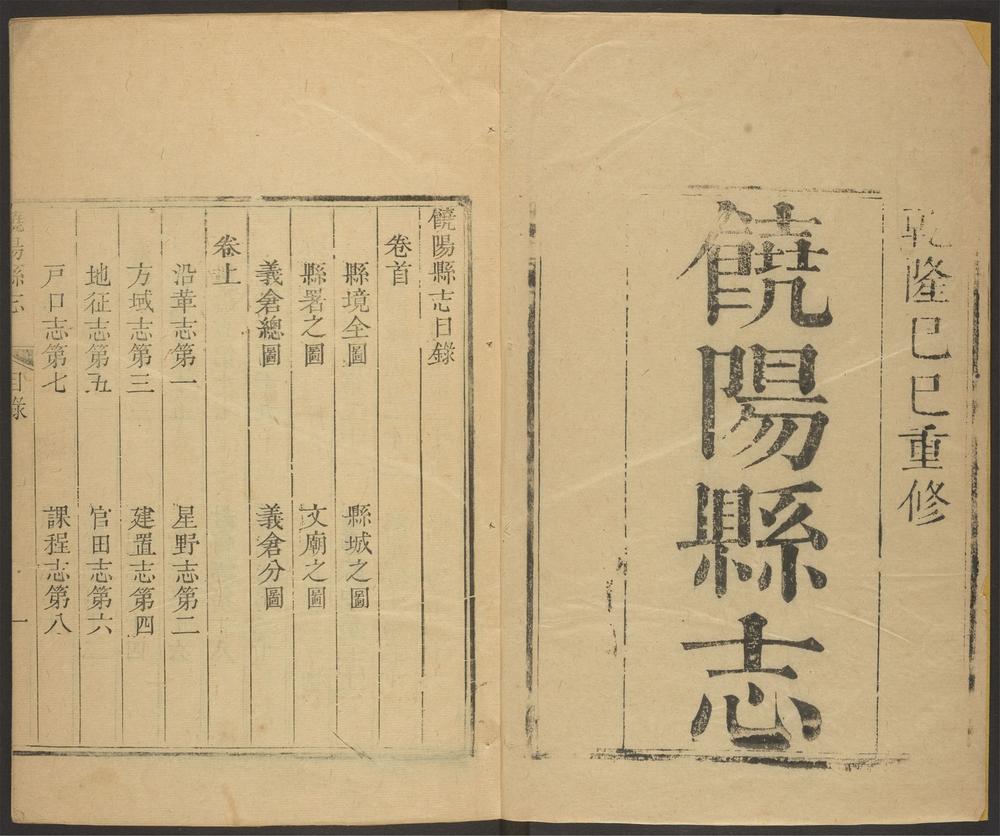 乾隆己巳重修
饒陽縣志
饒陽縣志目錄
卷首
縣境全圖　縣城之圖
縣署之圖　文廟之圖
義倉總圖　義倉分圖
卷上
沿革志第一　星野志第二
方域志第三　建置志第四
地征志第五　官田志第六
戸口志第七　課程志第八
饒陽縣志　目錄　一